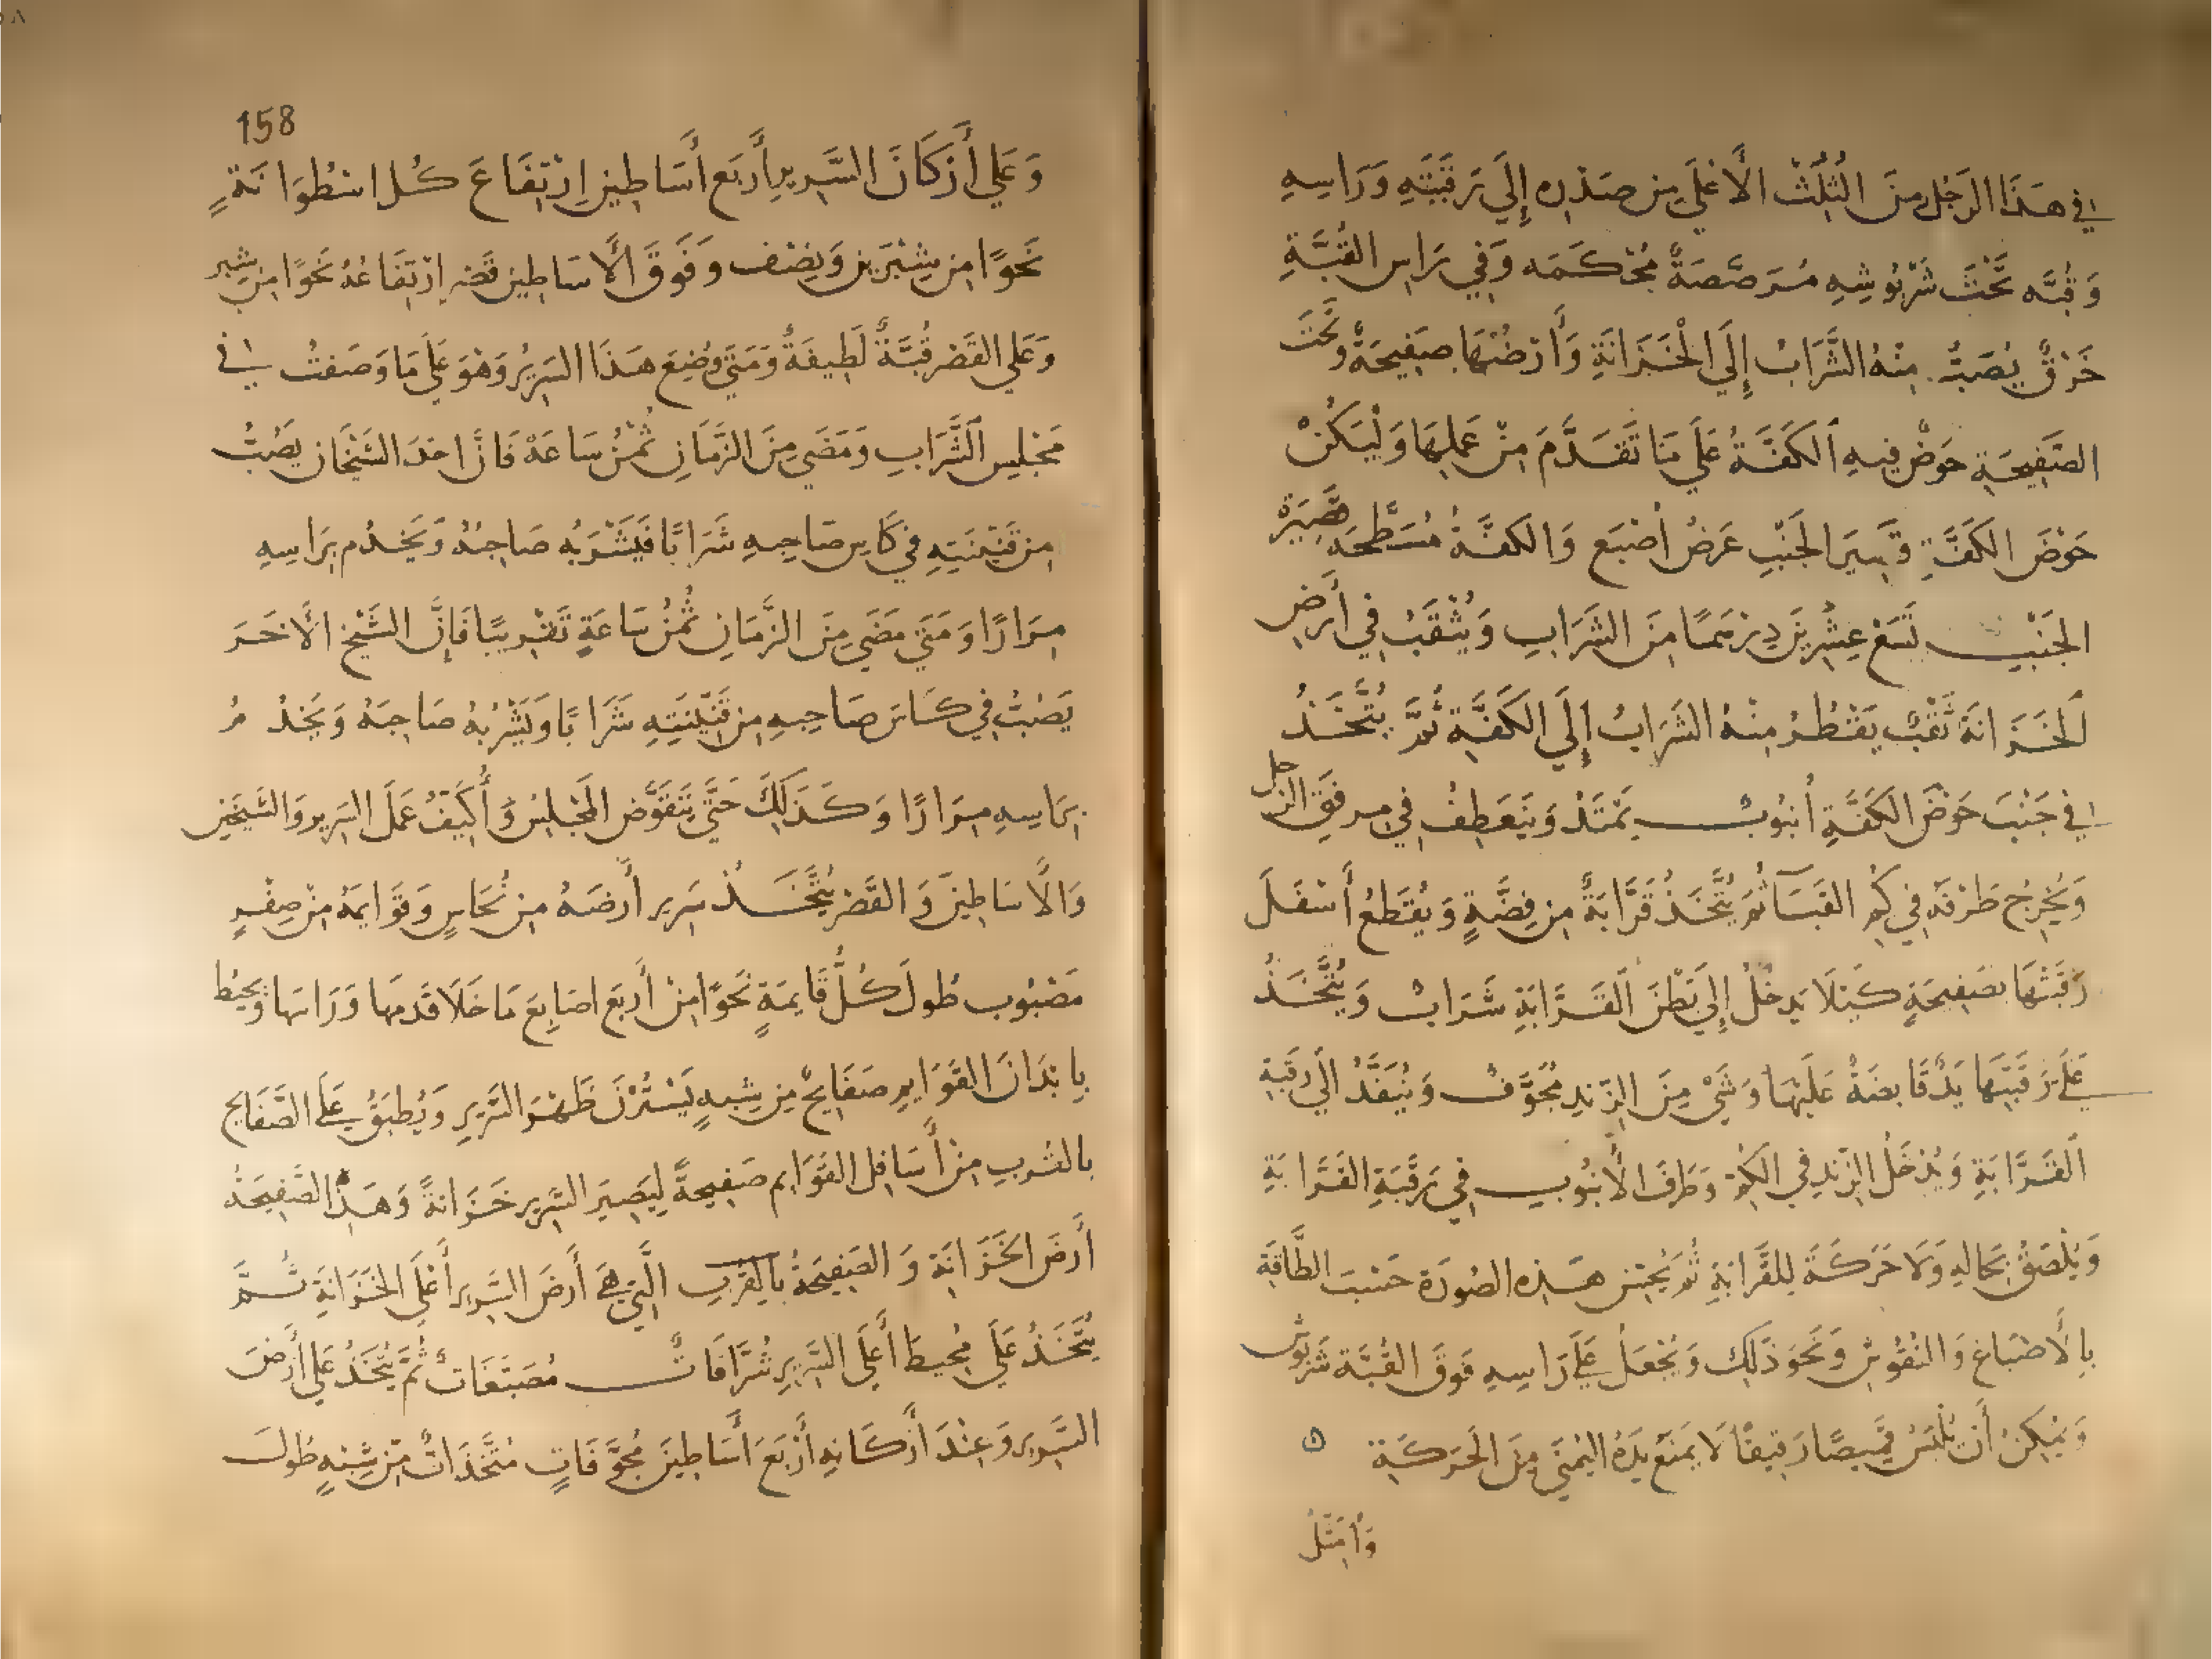 في هَذَا الرَجُل مِنَ الثُلُثْ الأَعْلَى مِن صَدْرِه إِلَى رَقَبَتِهِ وَرَاسِهِ
وَقُبَّه تَحْتَ شَرْبُوشِهِ مُرَصَّصَةً مُحْكَمَه وَفِي رَاسِ القُبَّةِ
خَرْقٌ يُصَبُّ مِنْهُ الشَّرَابُ إِلَى الْخَزَانَةِ وَأَرْضُهَا صَفِيحَةٌ وَتَحْتَ
الصَّفِيحَةِ حَوْضٌ فِيهِ اَلكَفَّةُ عَلَى مَا تَقَدَّمَ مِنْ عَمَلِهَا وَلْيَكُنْ
حَوْضَ الكَفَّةِ قَسِيرَ الجَنْبِ عَرْضُ أُصْبَع وَالكَفَّةُ مُسَطَّحَه قَصِيرَة
الجَنْبِ تَسَعْ عِشْرِينَ دِرْهَمًا مِنَ الشَرَابِ وَيُثْقَبُ فِي أَرْضِ
اَلخَزَانَةِ ثَقْبٌ يَقْطُرُ مِنْهُ الشَرَابُ إِلَى الكَفَّةِ ثُمَّ يُتَّخَذُ
في جَنْبَ حَوْضَ الكَفَّةِ أُنبُوبٌ يَمْتَدُ وَيَنْعَطِفُ فِي مِرفَقِ الرَجل
وَيُخْرِجُ طَرْفَه فِي كُمِ القَبَآ ثُمَ يُتَّخَذُ قَرَّابَةً مِن فِضَّةٍ وَيُقْطَعُ أَسْفَلَ
رَقَبَتْهَا بصَفِيحَةٍ كَيْلَا يَدخُلُ إِلَى بَطْنَ اَلقَرَّابَةِ شَرَابٌ وَيُتَّخَذُ
عَلَى رَقَبَتِهَا يَدٌ قَابِضَةٌ عَلَيْهَا وَشَيْ مِنَ الزَندِ مُجَوَّفٌ وَيُنَفَّذُ اَلَى رَقَبَةِ
اَلقَرَّابَةِ وَيُدْخَلُ الزَندِ فِي الكُمْ وَطَرَفَ الأُنبُوبِ فِي رَقَبَةِ القَرَّابَةِ
وَيُلْصَقُ بِحَالِهِ وَلَا حَرَكَةَ لِلقَرَّابَةِ ثُمَ هَذِه الصُورَة حَسْبَ الطَّاقَةِ
بِالأَصْبَاغ وَالنُقُوشْ وَنَحْوَ ذَلِكَ وَيُجْعَلُ عَلَى رَاسِهِ فَوقَ القُبَّة شَربُوش
وَيُمْكِنُ أَنْ يُلْبَسُ قَمِيصًا رَقِيقًا لَا يَمنَعُ يَدَهُ اليُمنَى مِنَ الْحَرَكَةِ ۞
وَأُمَثِّلُ
158
وَعَلَى أَرْكَانَ السَّرِيرِ أَرْبَع أَسَاطِينِ اِرْتِفَاعَ كُل اسْطُوَانَةٍ
نَحْوًا مِن شِبْرَينِ وَنِصْف وَفَوقَ الأَسَاطِين قَصْر اِرْتِفَاعُهُ نَحْوًا مِن شِبر
وَعَلَى القَصْر قُبَّةٌ لَطِيفَةٌ وَمَتَى وُضِعَ هَذَا السَرِيرُ وَهْوَ عَلَى مَا وَصَفتُ في
مَجْلِسِ اَلشَّرَابِ وَمَضَى مِنَ الزَّمَانِ ثُمْنُ سَاعَةْ فَاِنَّ احَدَ الشَيْخَان يَصُبُّ
مِن قَنِّينَتِهِ فِي كَاسِ صَاحِبِهِ شَرَابًا فَيَشْرَبُه صَاحِبُهُ وَيَخْدُم بِرَاسِهِ
مِرَارًا وَمَتَى مَضَى مِنَ الزَّمَانِ ثُمْنُ سَاعَةٍ تَقْرِيبًا فَإِنَّ الشَيْخَ الأَخَر
يَصُبُّ فِي كَاسَ صَاحِبِهِ مِن قَنِّينَتِهِ شَرَابًا وَيَشْرَبُهُ صَاحِبَهُ وَيَخْدُمُ
بِرَاسِهِ مِرَارًا وَكَذَلِكَ حَتَّى يَتَقَوَّض المَجْلِسُ وَأُكَيِّفُ عَمَلَ السَرِيرِ وَالشَيْخَين
وَالأَسَاطِينَ وَالقَصْر يُتَّخَذُ سَرِير أَرْضَهُ مِن نُحَاسٍ وَقَوَايِمَهُ مِنْ صِفْرٍ
مَصْبُوبٍ طُولَ كُلَّ قَايِمَةٍ نَحْوًا مِنْ أَرْبَع اصَابِعَ مَا خَلَا قَدَمهَا وَرَاسهَا وَيُحِيطُ
بِابْدَانَ القَوَايِمِ صَفَايِحٌ مِن شِبهٍ يَسْتُرْنَ ظَهْرَ السَّرِيرِ وَيُطبَقُ عَلَى الصَّفَايح
بالقُربِ مِنْ أَسَافِل القَوَايِم صَفِيحةً لِيَصِيرَ السَّرِير خَزَانةً وَهَذِهِ الصَّفِيحَةُ
أَرضَ الخَزَانَةِ وَالصَفِيحَةُ بِالقُربِ الَّتِي هِيَ أَرضَ السَّرِيرِ أَعْلَى الخَزَانَةِ ثُمَّ
يُتَّخَذُ عَلَى مُحِيطَ أَعلَى السَّرِيرِ شُرَّافَاتٌ مُصَبَّغَاتٌ ثُمَّ يُتَّخَذُ عَلَى أَرضَ
السَّرِيرِ وَعِنْدَ أَرْكَانِهِ أَرْبَعَ أَسَاطِينَ مُجَوَّفَاتٍ مُتَّخَذَاتٌ مِن شِبْهٍ طُولَ